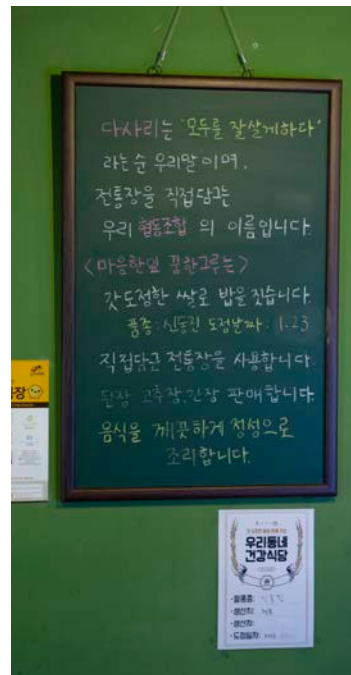 다사리는 '모두를 잘살게하다'
라는 순 우리말이며,
전통장을 직접담그는
우리 협동조합 의 이름입니다.
<마음한잎 꿈한그루는>
갓도정한 쌀로 밥을 짓습니다.
품종: 신동진 도정날짜. 1.23
직접담근 전통장을 사용합니다.
된장 고추장.간장 판매합니다.
음식을 깨끗하게 정성으로
조리합니다.
장
우리동네
건강식당
·쌀품종:
·생산지:
·생산자:
·도정일자: